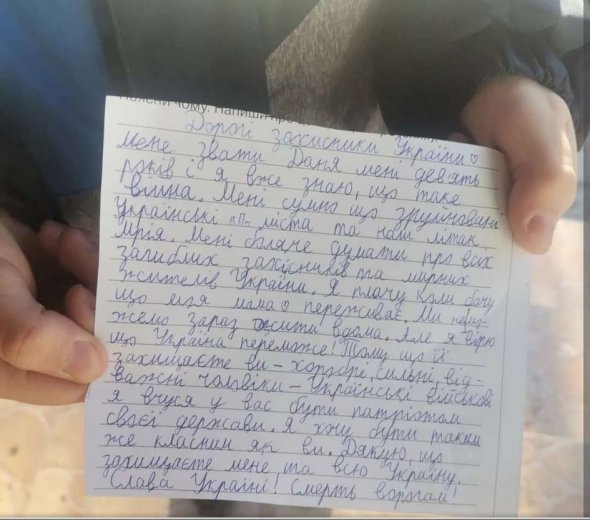 поясни чому. Напиши про
Дорогі захисники України♡
мене звати Даня мені дев'ять
років і я вже знаю, що таке
війна. Мені сумно що зруйновані
українські міста та наш літак
Мрія. Мені боляче думати про всіх
загиблих захісників та мирних
жителів України. Я плачу коли бачу
що моя мама♡ переживає. Ми не
жемо зараз жити вдома. Але я вірю
що Україна переможе! Тому що її
захищаєте ви – хоробрі, сильні, від-
важні чоловіки – Українські військові
я вчуся у вас бути патріотом
своєї держави. Я хочу бути таким
же класним як ви. Дякую, що
захищаєте мене та всю Україну.
Слава Україні! Смерть ворогам!